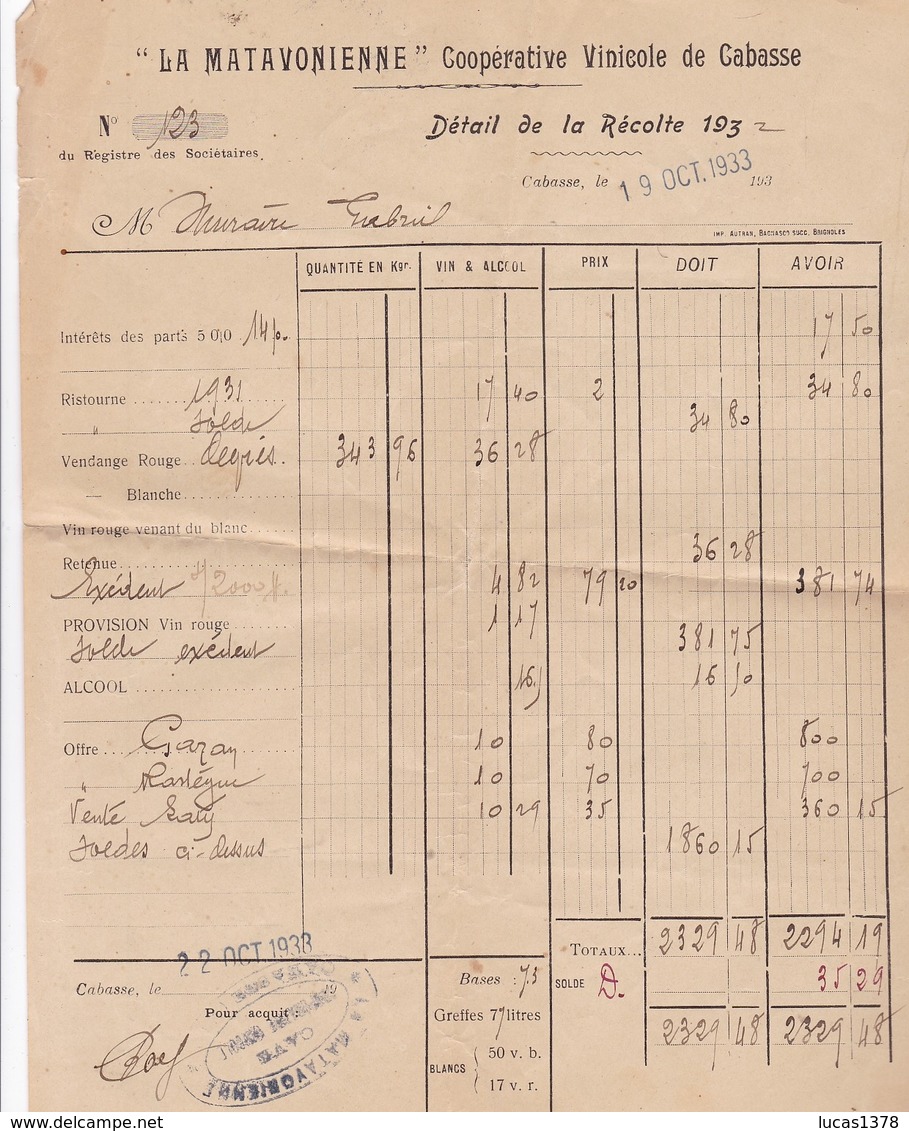 "LA MATAVONIENNE" Coopérative Vinicole de Cabasse
N° 123
du Registre des Sociétaires.
Détail de la Récolte 1932
Cabasse, le 19 OCT. 1933 193
M Muraire Gabriel
IMP. AUTRAN, BAGNASCO SUCC. BRIGNOLES
QUANTITÉ EN Kgr. VIN & ALCOOL PRIX DOIT AVOIR
Intérêts des parts 5 0/0 14 17 50
Ristourne 1931 17 40 2 34 80
" Solde 34 80
Vendange Rouge degrés 343 96 36 28
— Blanche
Vin rouge venant du blanc
Retenue 36 28
Exédent 2000 4 82 79 20 381 74
PROVISION Vin rouge 1 17
Solde exédent 381 75
ALCOOL 16 50
Offre Garan 10 80 800
" 10 70 700
Vente 10 29 35 360 15
Soldes ci-dessus 1860 15
TOTAUX 2329 48 2294 19
SOLDE D. 35 29
2329 48 2329 48
22 OCT. 1933
Cabasse, le 19
Pour acquit:
LA MATAVONIENNE
CAVE
Bases : 7.5
Greffes 77 litres
BLANCS { 50 v. b.
17 v. r.
lucas1378